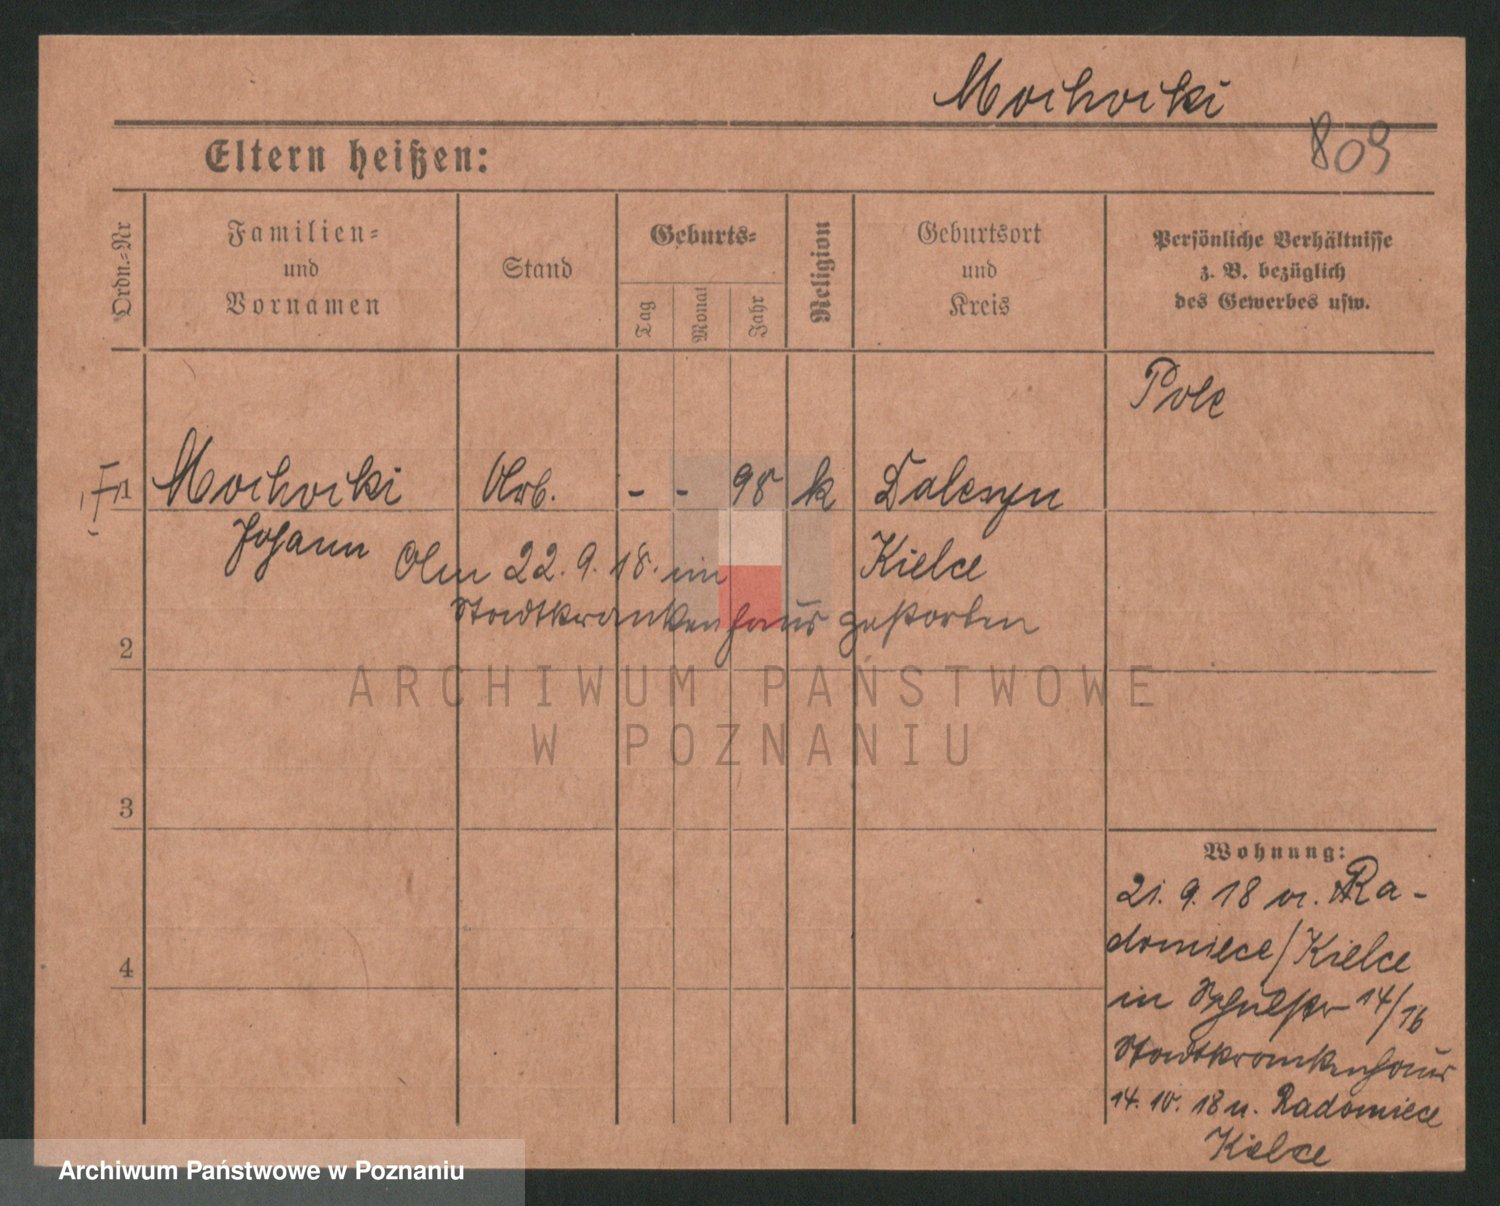 Mochocki
809
Eltern heißen:
Ordn.-Nr
Familien-
und
Vornamen
Stand
Geburts-
Tag
Monat
Jahr
Religion
Geburtsort
und
Kreis
Persönliche Verhältnisse
z. B. bezüglich
des Gewerbes usw.
Pole
1 Mochocki Arb. - - 98 k Daleszyn
Johann Kielce
Am 22.9.18. im
Stadtkrankenhaus gestorben
2
3
4
Wohnung:
21.9.18 v. Ra-
domiece/Kielce
in Schulstr 14/16
Stadtkrankenhaus
14.10.18 n. Radomiece
Kielce
ARCHIWUM PAŃSTWOWE
W POZNANIU
Archiwum Państwowe w Poznaniu